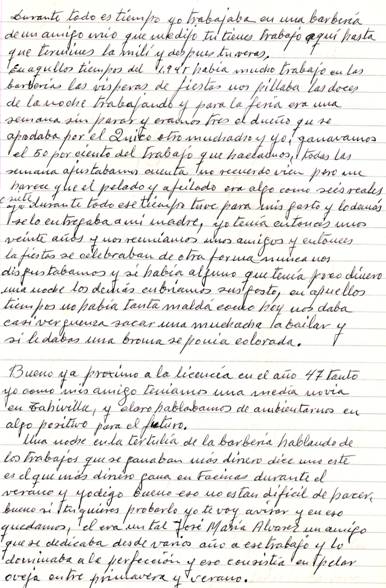 Durante todo es tiempo yo trabajaba en una barbería
de un amigo mio que medijo tu tienes trabajo aquí hasta
que termines la mili y despues tu veras.
En aquellos tiempos del 1.945 había mucho trabajo en las
barberías las visperas de fiestas nos pillaba las doces
de la noche trabajando y para la feria era una
semana sin parar y eramos tres el dueño que se
apodaba por el Quico otro muchacho y yo, ganavamos
el 50 por ciento del trabajo que haciamos, todas las
semana ajustabamos cuenta no recuerdo vien pero me
parece que el pelado y afeitado era algo como seis reales
durante todo ese tiempo tuve para mis gasto y lo demás
se lo entregaba a mi madre, yo tenía entonces unos
veinte años y nos reuniamos unos amigos y entonces
la fiestas se celebraban de otra forma nunca nos
disgustabamos y si había alguno que tenía poco dinero
una noche los demás cubriamos sus gasto, en aquellos
tiempos no había tanta maldá como hoy nos daba
casi verguenza sacar una muchacha la bailar y
si le dabas una broma se ponía colorada.
Bueno ya proximo a la licencia en el año 47 tanto
yo como mis amigo teniamos una media novia
en Tahivilla, y claro hablabamos de ambientarnos en
algo positivo para el futuro.
Una noche en la tertulia de la barbería hablando de
los trabajos que se ganaban más dinero dice uno este
es el que más dinero gana en Facinas durante el
verano y yo digo bueno eso no es tan dificil de hacer,
bueno si tu quieres probarlo yo te voy avisar y en eso
quedamos, el era un tal José María Alvarez un amigo
que se dedicaba desde varios año a ese trabajo y lo
dominaba a la perfección y eso consistia en pelar
oveja entre primavera y verano.